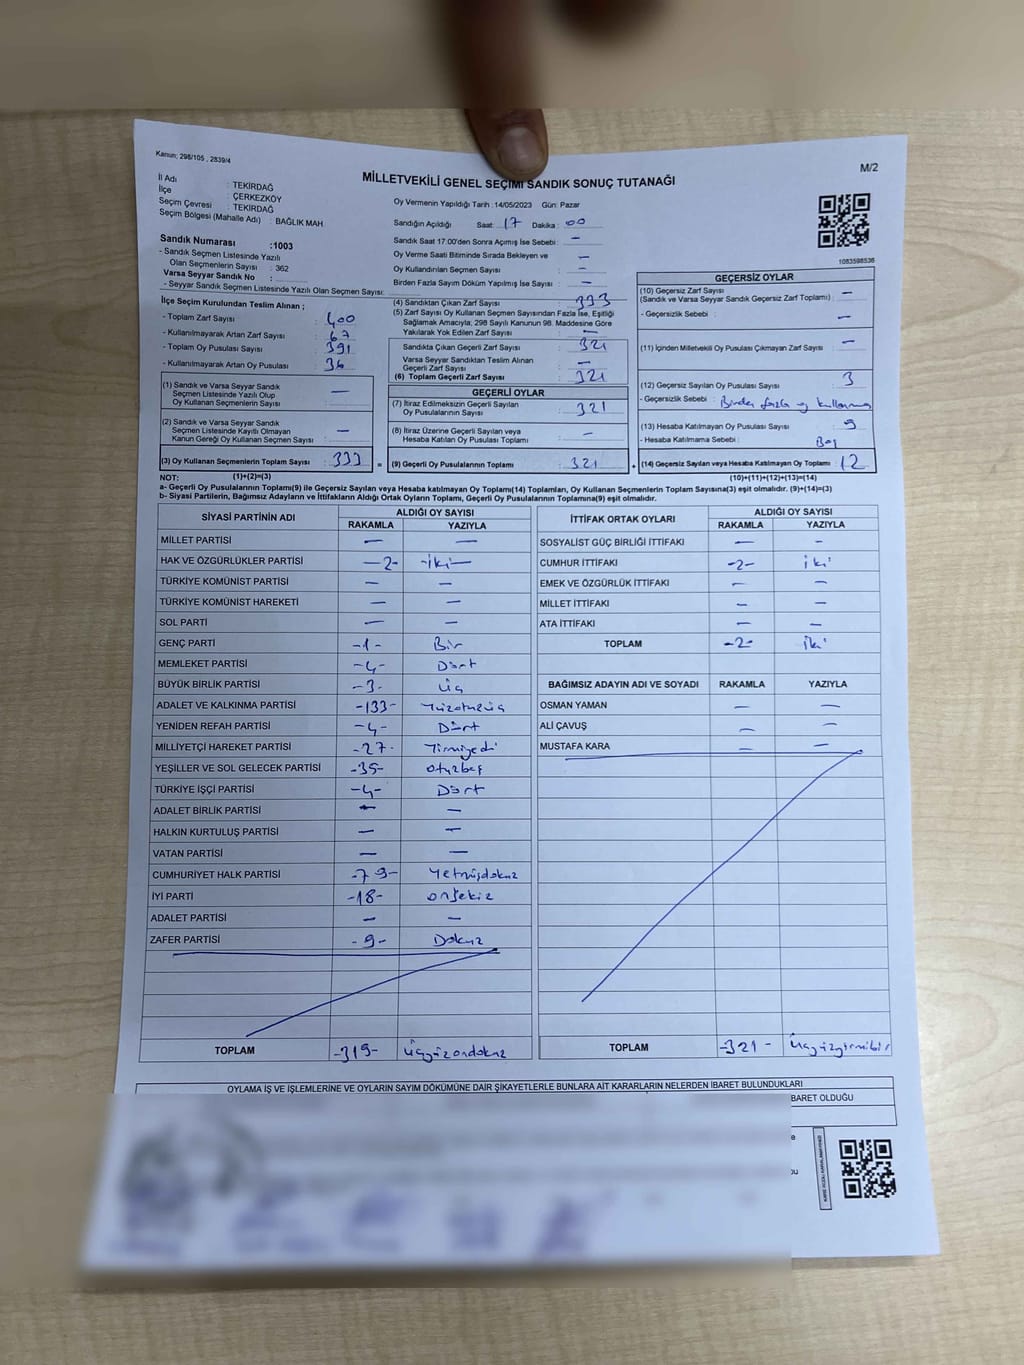 Kanun; 298/105 , 2839/4
M/2
MİLLETVEKİLİ GENEL SEÇİMİ SANDIK SONUÇ TUTANAĞI
İl Adı : TEKİRDAĞ
İlçe : ÇERKEZKÖY
Seçim Çevresi : TEKİRDAĞ
Seçim Bölgesi (Mahalle Adı) : BAĞLIK MAH
Oy Vermenin Yapıldığı Tarih :14/05/2023 Gün: Pazar
Sandığın Açıldığı Saat: 17 Dakika : 00
Sandık Saat 17.00'den Sonra Açımış İse Sebebi: —
Oy Verme Saati Bitiminde Sırada Bekleyen ve
Oy Kullandırılan Seçmen Sayısı : —
Birden Fazla Sayım Döküm Yapılmış İse Sayısı : —
1083598536
Sandık Numarası :1003
- Sandık Seçmen Listesinde Yazılı
Olan Seçmenlerin Sayısı : 362
Varsa Seyyar Sandık No :
- Seyyar Sandık Seçmen Listesinde Yazılı Olan Seçmen Sayısı:
İlçe Seçim Kurulundan Teslim Alınan ;
- Toplam Zarf Sayısı : 400
- Kullanılmayarak Artan Zarf Sayısı : 67
- Toplam Oy Pusulası Sayısı : 391
- Kullanılmayarak Artan Oy Pusulası : 36
(1) Sandık ve Varsa Seyyar Sandık
Seçmen Listesinde Yazılı Olup
Oy Kullanan Seçmenlerin Sayısı : —
(2) Sandık ve Varsa Seyyar Sandık
Seçmen Listesinde Kayıtlı Olmayan
Kanun Gereği Oy Kullanan Seçmen Sayısı : —
(3) Oy Kullanan Seçmenlerin Toplam Sayısı : 333
(4) Sandıktan Çıkan Zarf Sayısı : 333
(5) Zarf Sayısı Oy Kullanan Seçmen Sayısından Fazla İse, Eşitliği
Sağlamak Amacıyla; 298 Sayılı Kanunun 98. Maddesine Göre
Yakılarak Yok Edilen Zarf Sayısı : —
Sandıkta Çıkan Geçerli Zarf Sayısı : 321
Varsa Seyyar Sandıktan Teslim Alınan
Geçerli Zarf Sayısı : —
(6) Toplam Geçerli Zarf Sayısı : 321
GEÇERLİ OYLAR
(7) İtiraz Edilmeksizin Geçerli Sayılan
Oy Pusulalarının Sayısı : 321
(8) İtiraz Üzerine Geçerli Sayılan veya
Hesaba Katılan Oy Pusulası Toplamı : —
= (9) Geçerli Oy Pusulalarının Toplamı : 321
GEÇERSİZ OYLAR
(10) Geçersiz Zarf Sayısı : —
(Sandık ve Varsa Seyyar Sandık Geçersiz Zarf Toplamı)
- Geçersizlik Sebebi : —
(11) İçinden Milletvekili Oy Pusulası Çıkmayan Zarf Sayısı : —
(12) Geçersiz Sayılan Oy Pusulası Sayısı : 3
- Geçersizlik Sebebi : Birden fazla oy kullanma
(13) Hesaba Katılmayan Oy Pusulası Sayısı : 9
- Hesaba Katılmama Sebebi : Boş
+ (14) Geçersiz Sayılan veya Hesaba Katılmayan Oy Toplamı : 12
NOT: (1)+(2)=(3) (10)+(11)+(12)+(13)=(14)
a- Geçerli Oy Pusulalarının Toplamı(9) ile Geçersiz Sayılan veya Hesaba katılmayan Oy Toplamı(14) Toplamları, Oy Kullanan Seçmenlerin Toplam Sayısına(3) eşit olmalıdır. (9)+(14)=(3)
b- Siyasi Partilerin, Bağımsız Adayların ve İttifakların Aldığı Ortak Oyların Toplamı, Geçerli Oy Pusulalarının Toplamına(9) eşit olmalıdır.
SİYASİ PARTİNİN ADI ALDIĞI OY SAYISI
RAKAMLA YAZIYLA
MİLLET PARTİSİ — —
HAK VE ÖZGÜRLÜKLER PARTİSİ —2- -iki—
TÜRKİYE KOMÜNİST PARTİSİ — —
TÜRKİYE KOMÜNİST HAREKETİ — —
SOL PARTİ — —
GENÇ PARTİ -1- Bir
MEMLEKET PARTİSİ -4- Dört
BÜYÜK BİRLİK PARTİSİ -3- üç
ADALET VE KALKINMA PARTİSİ -133- Yüzotuzüç
YENİDEN REFAH PARTİSİ -4- Dört
MİLLİYETÇİ HAREKET PARTİSİ -27- Yirmiyedi
YEŞİLLER VE SOL GELECEK PARTİSİ -35- otuzbeş
TÜRKİYE İŞÇİ PARTİSİ -4- Dört
ADALET BİRLİK PARTİSİ — —
HALKIN KURTULUŞ PARTİSİ — —
VATAN PARTİSİ — —
CUMHURİYET HALK PARTİSİ -79- Yetmişdokuz
İYİ PARTİ -18- onsekiz
ADALET PARTİSİ — —
ZAFER PARTİSİ -9- Dokuz
TOPLAM -319- üçyüzondokuz
İTTİFAK ORTAK OYLARI ALDIĞI OY SAYISI
RAKAMLA YAZIYLA
SOSYALİST GÜÇ BİRLİĞİ İTTİFAKI — —
CUMHUR İTTİFAKI -2- iki
EMEK VE ÖZGÜRLÜK İTTİFAKI — —
MİLLET İTTİFAKI — —
ATA İTTİFAKI — —
TOPLAM -2- iki
BAĞIMSIZ ADAYIN ADI VE SOYADI RAKAMLA YAZIYLA
OSMAN YAMAN — —
ALİ ÇAVUŞ — —
MUSTAFA KARA — —
TOPLAM -321- üçyüzyirmibir
OYLAMA İŞ VE İŞLEMLERİNE VE OYLARIN SAYIM DÖKÜMÜNE DAİR ŞİKAYETLERLE BUNLARA AİT KARARLARIN NELERDEN İBARET BULUNDUKLARI
BARET OLDUĞU